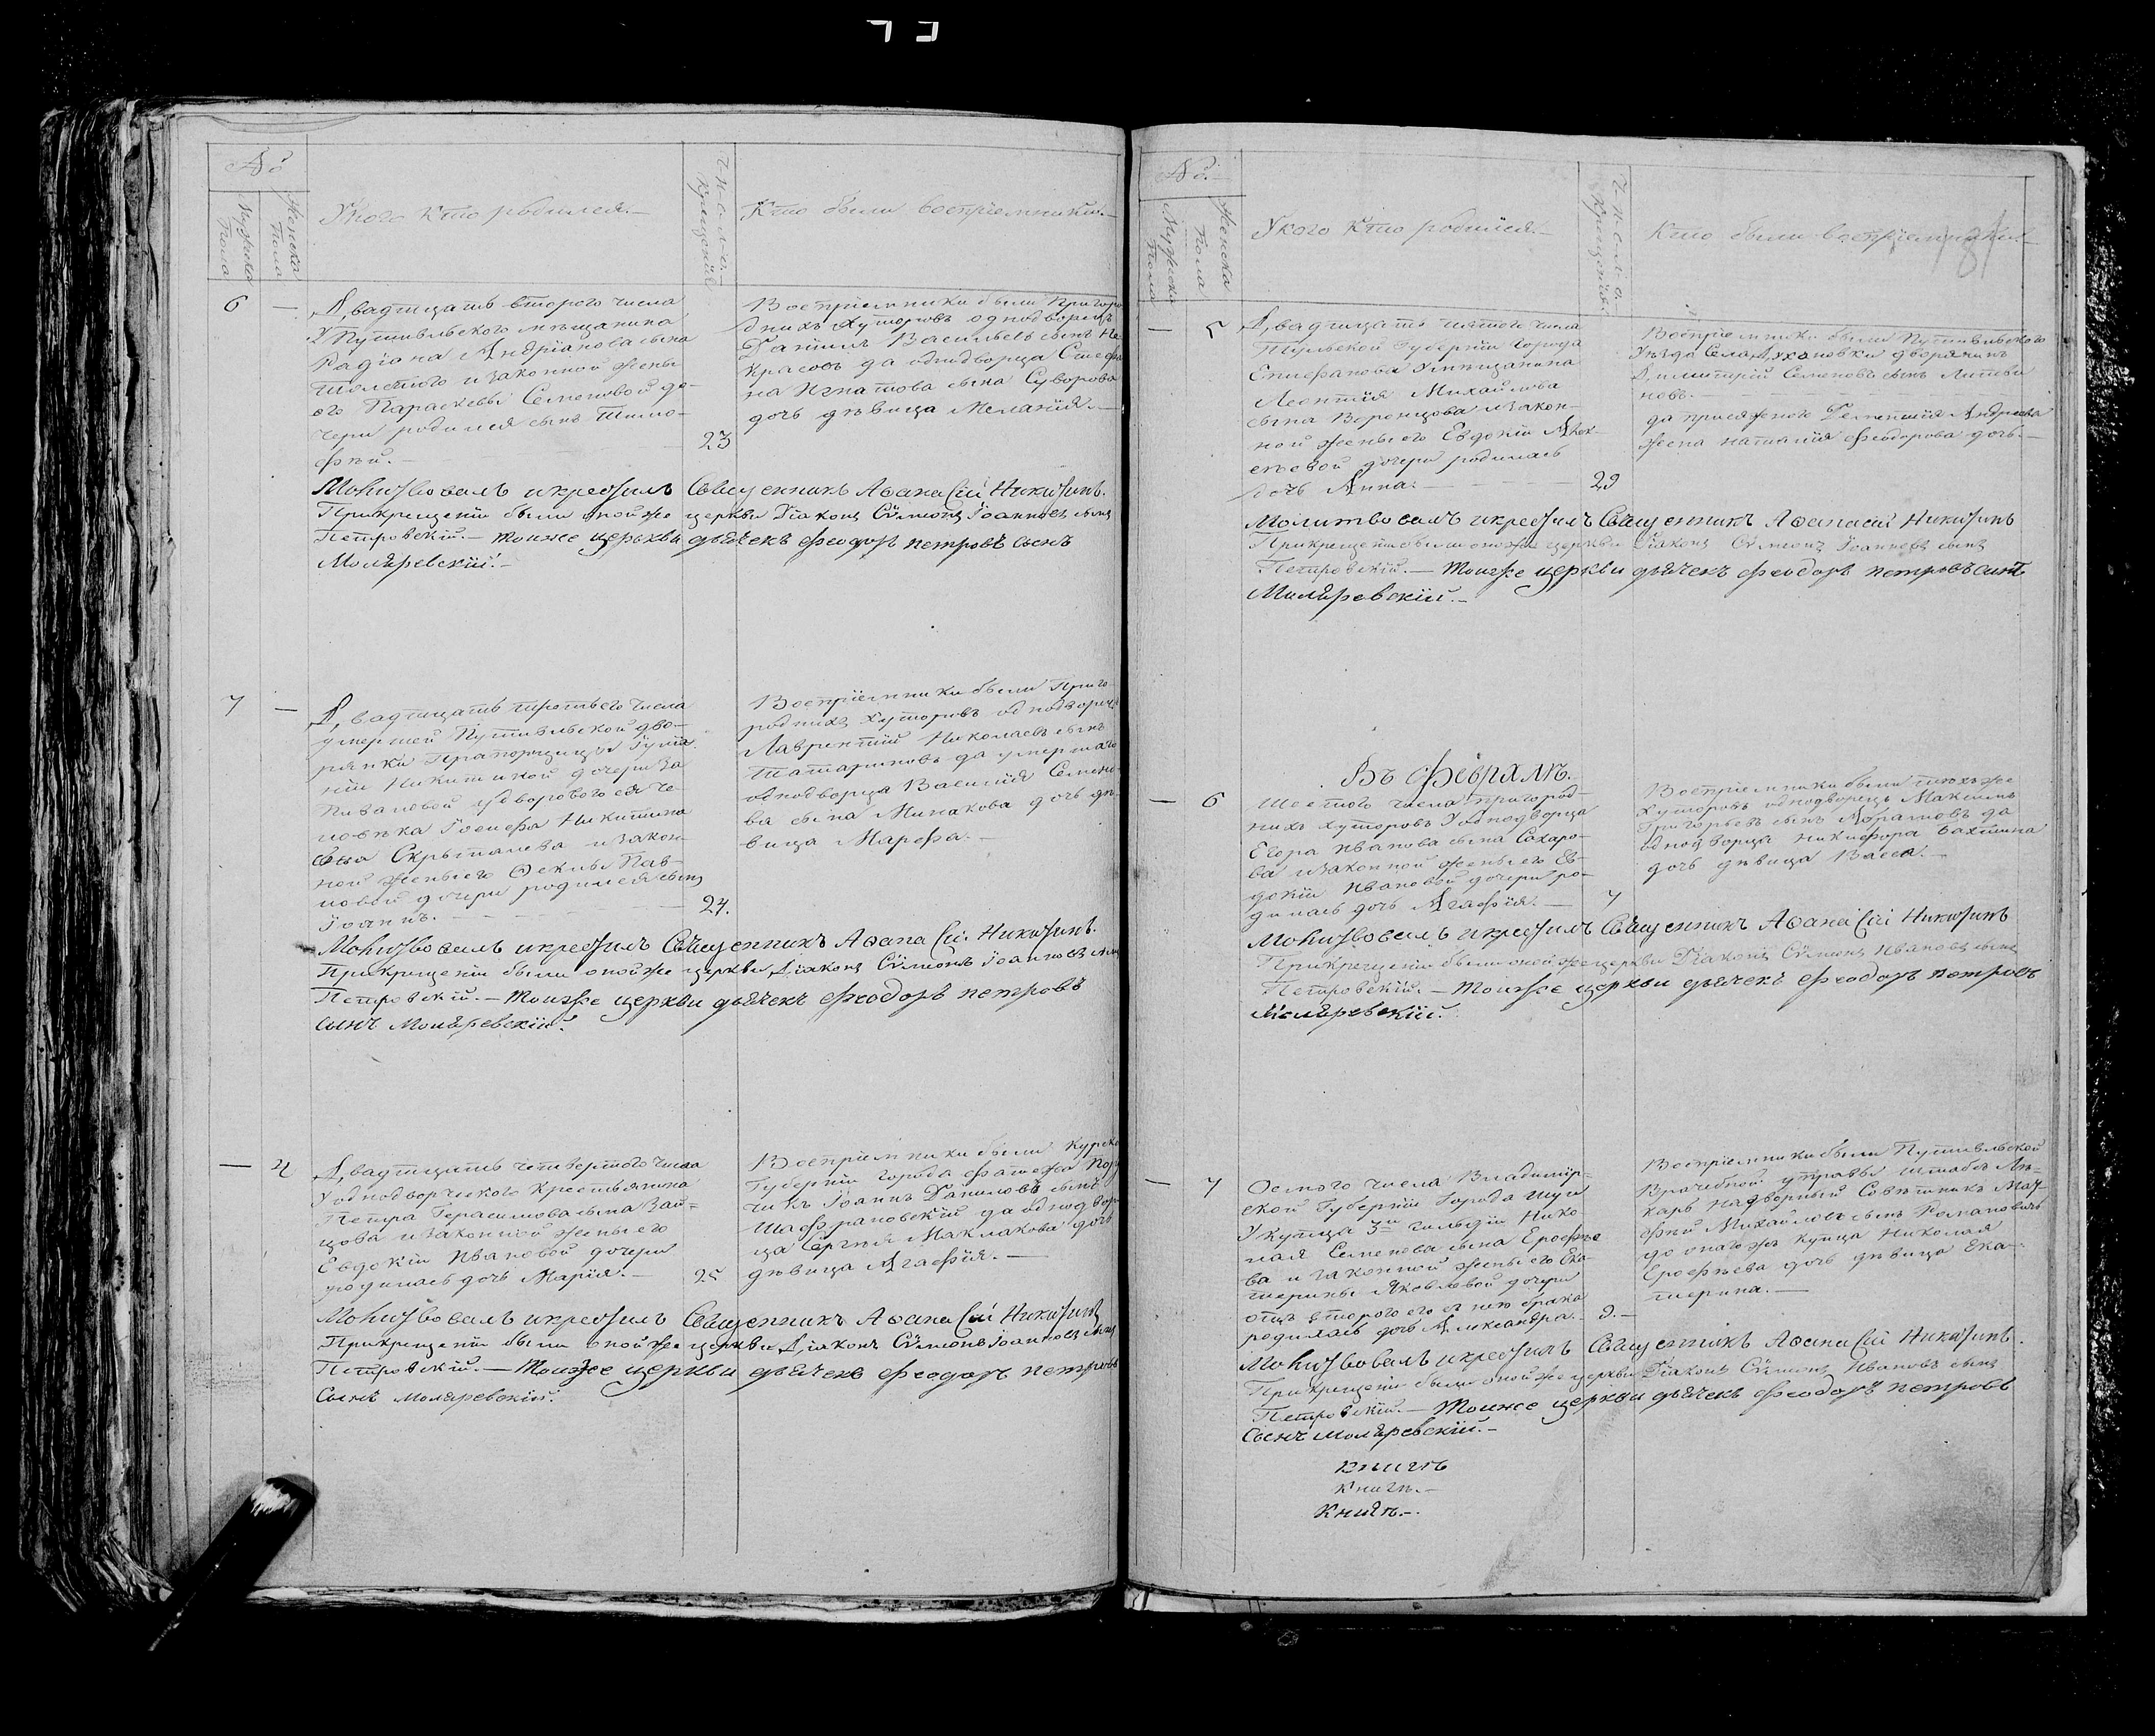 №
Мужеска
Пола
Женска
Пола
У кого кто родился.—
Числа
Крещенія
Кто были воспріемники.—
6 —
Двадцать втораго числа
У Путивльского мѣщанина
Радіона Андріанова сына
Толстого и законной жены
его Параскевы Семеновой до-
чери родился сынъ Тимо-
фѣй.—
23
Воспріемники были Пригоро
днихъ Хуторовъ однодворецъ
Даніилъ Васильевъ сынъ Не-
красовъ да однодворца Стефа
на Игнатова сына Суворова
дочь дѣвица Меланія.—
Молитвовалъ и крестилъ Священникъ Аѳанасій Никитинъ.
При крещеніи были оной же церкви Діаконъ Сѵмеонъ Іоанновъ сынъ
Петровскій.— Тоиже церкви дьячекъ Феодоръ Петровъ сынъ
Моляревскій.—
7 —
Двадцать третьего числа
умершей Путивльской дво-
рянки Прапорщицы Іулiа-
ніи Никитиной дочери За
Пивановой у дворового ея че-
ловѣка Іосифа Никитина
сына Скрыталева и закон-
ной жены его Ѳеклы Пав-
ловой дочери родился сынъ
Іоаннъ.—
24.
Воспріемники были Приго-
роднихъ хуторовъ однодворецъ
Лаврентій Николаевъ сынъ
Татариновъ да умершаго
однодворца Василія Семено-
ва сына Минакова дочь дѣ-
вица Марфа.—
Молитвовалъ и крестилъ Священникъ Аѳанасій Никитинъ.
При крещеніи были оной же церкви Діаконъ Сѵмеонъ Іоанновъ сынъ
Петровскій.— Тоиже церкви дьячекъ Феодоръ Петровъ
сынъ Моляревскій.
— 4
Двадцать четвертого числа
У однодворческого крестьянина
Петра Герасимова сына Зай-
цова и законной жены его
Евдокіи Ивановой дочери
родилась дочь Марія.—
25
Воспріемники были Курско
Губерніи города Фатежа
чикъ Іоаннъ Даниловъ сынъ
Шафрановскій да однодвор
ца Сергѣя Маклакова дочь
дѣвица Агафія.—
Молитвовалъ и крестилъ Священникъ Аѳанасій Никитинъ
При крещеніи были оной же церкви Діаконъ Сѵмеонъ Іоанновъ сынъ
Петровскій.— Тоиже церкви дьячекъ Феодоръ Петровъ
Сынъ Моляревскій.
№.
Мужеска
Пола
Женска
Пола
У кого кто родился.—
Числа
Крещенія
Кто были воспріемники.—
— 5
Двадцать пятого числа
Тульской Губерніи города
Епифанова У мѣщанина
Леонтія Михайлова
сына Воронцова и закон-
ной жены его Евдокіи Алек-
сѣевой дочери родилась
дочь Анна.—
29
Воспріемники были Путивльского
Уѣзда Села Духановки дворянинъ
Димитрій Семеновъ сынъ Литви
новъ.—
да присяжного Терентія Андреева
жена Наталія Феодорова дочь.—
Молитвовалъ и крестилъ Священникъ Аѳанасій Никитинъ
При крещеніи были оной же церкви Діаконъ Сѵмеонъ Іоанновъ сынъ
Петровскій.— Тоиже церкви дьячекъ Феодоръ Петровъ сынъ
Моляревскій.—
Въ Февралѣ.
— 6
Шестого числа пригород-
нихъ хуторовъ У однодворца
Егора Иванова сына Сахаро-
ва и законной жены его Ев-
докіи Ивановой дочери ро-
дилась дочь Агафія.—
7
Воспріемники были тѣхъ же
Хуторовъ однодворецъ Максимъ
Григорьевъ сынъ Абрамовъ да
однодворца Никифора Бахтина
дочь дѣвица Васса.—
Молитвовалъ и крестилъ Священникъ Аѳанасій Никитинъ
При крещеніи были оной же церкви Діаконъ Сѵмеонъ Ивановъ сынъ
Петровскій.— Тоиже церкви дьячекъ Феодоръ Петровъ
Моляревскій.
— 7
Осмого числа Владимір-
ской Губерніи Города Шуи
У купца 3й гильдіи Нико-
лая Семенова сына Ерофѣе
ва и законной жены его Ека-
терины Яковлевой дочери
отъ второго его съ нею брака
родилась дочь Александра.—
9.—
Воспріемники были Путивльской
Врачебной управы Штабъ Лѣ-
карь надворный Совѣтникъ Мат-
фей Михайловъ сынъ Романовичъ
да онаго жъ купца Николая
Ерофѣева дочь дѣвица Ека-
терина.—
Молитвовалъ и крестилъ Священникъ Аѳанасій Никитинъ.
При крещеніи были оной же церкви Діаконъ Сѵмеонъ Ивановъ сынъ
Петровскій.— Тоиже церкви дьячекъ Феодоръ Петровъ
Сынъ Моляревскій.—
Книгѣ
Книгѣ.—
Книгѣ.—